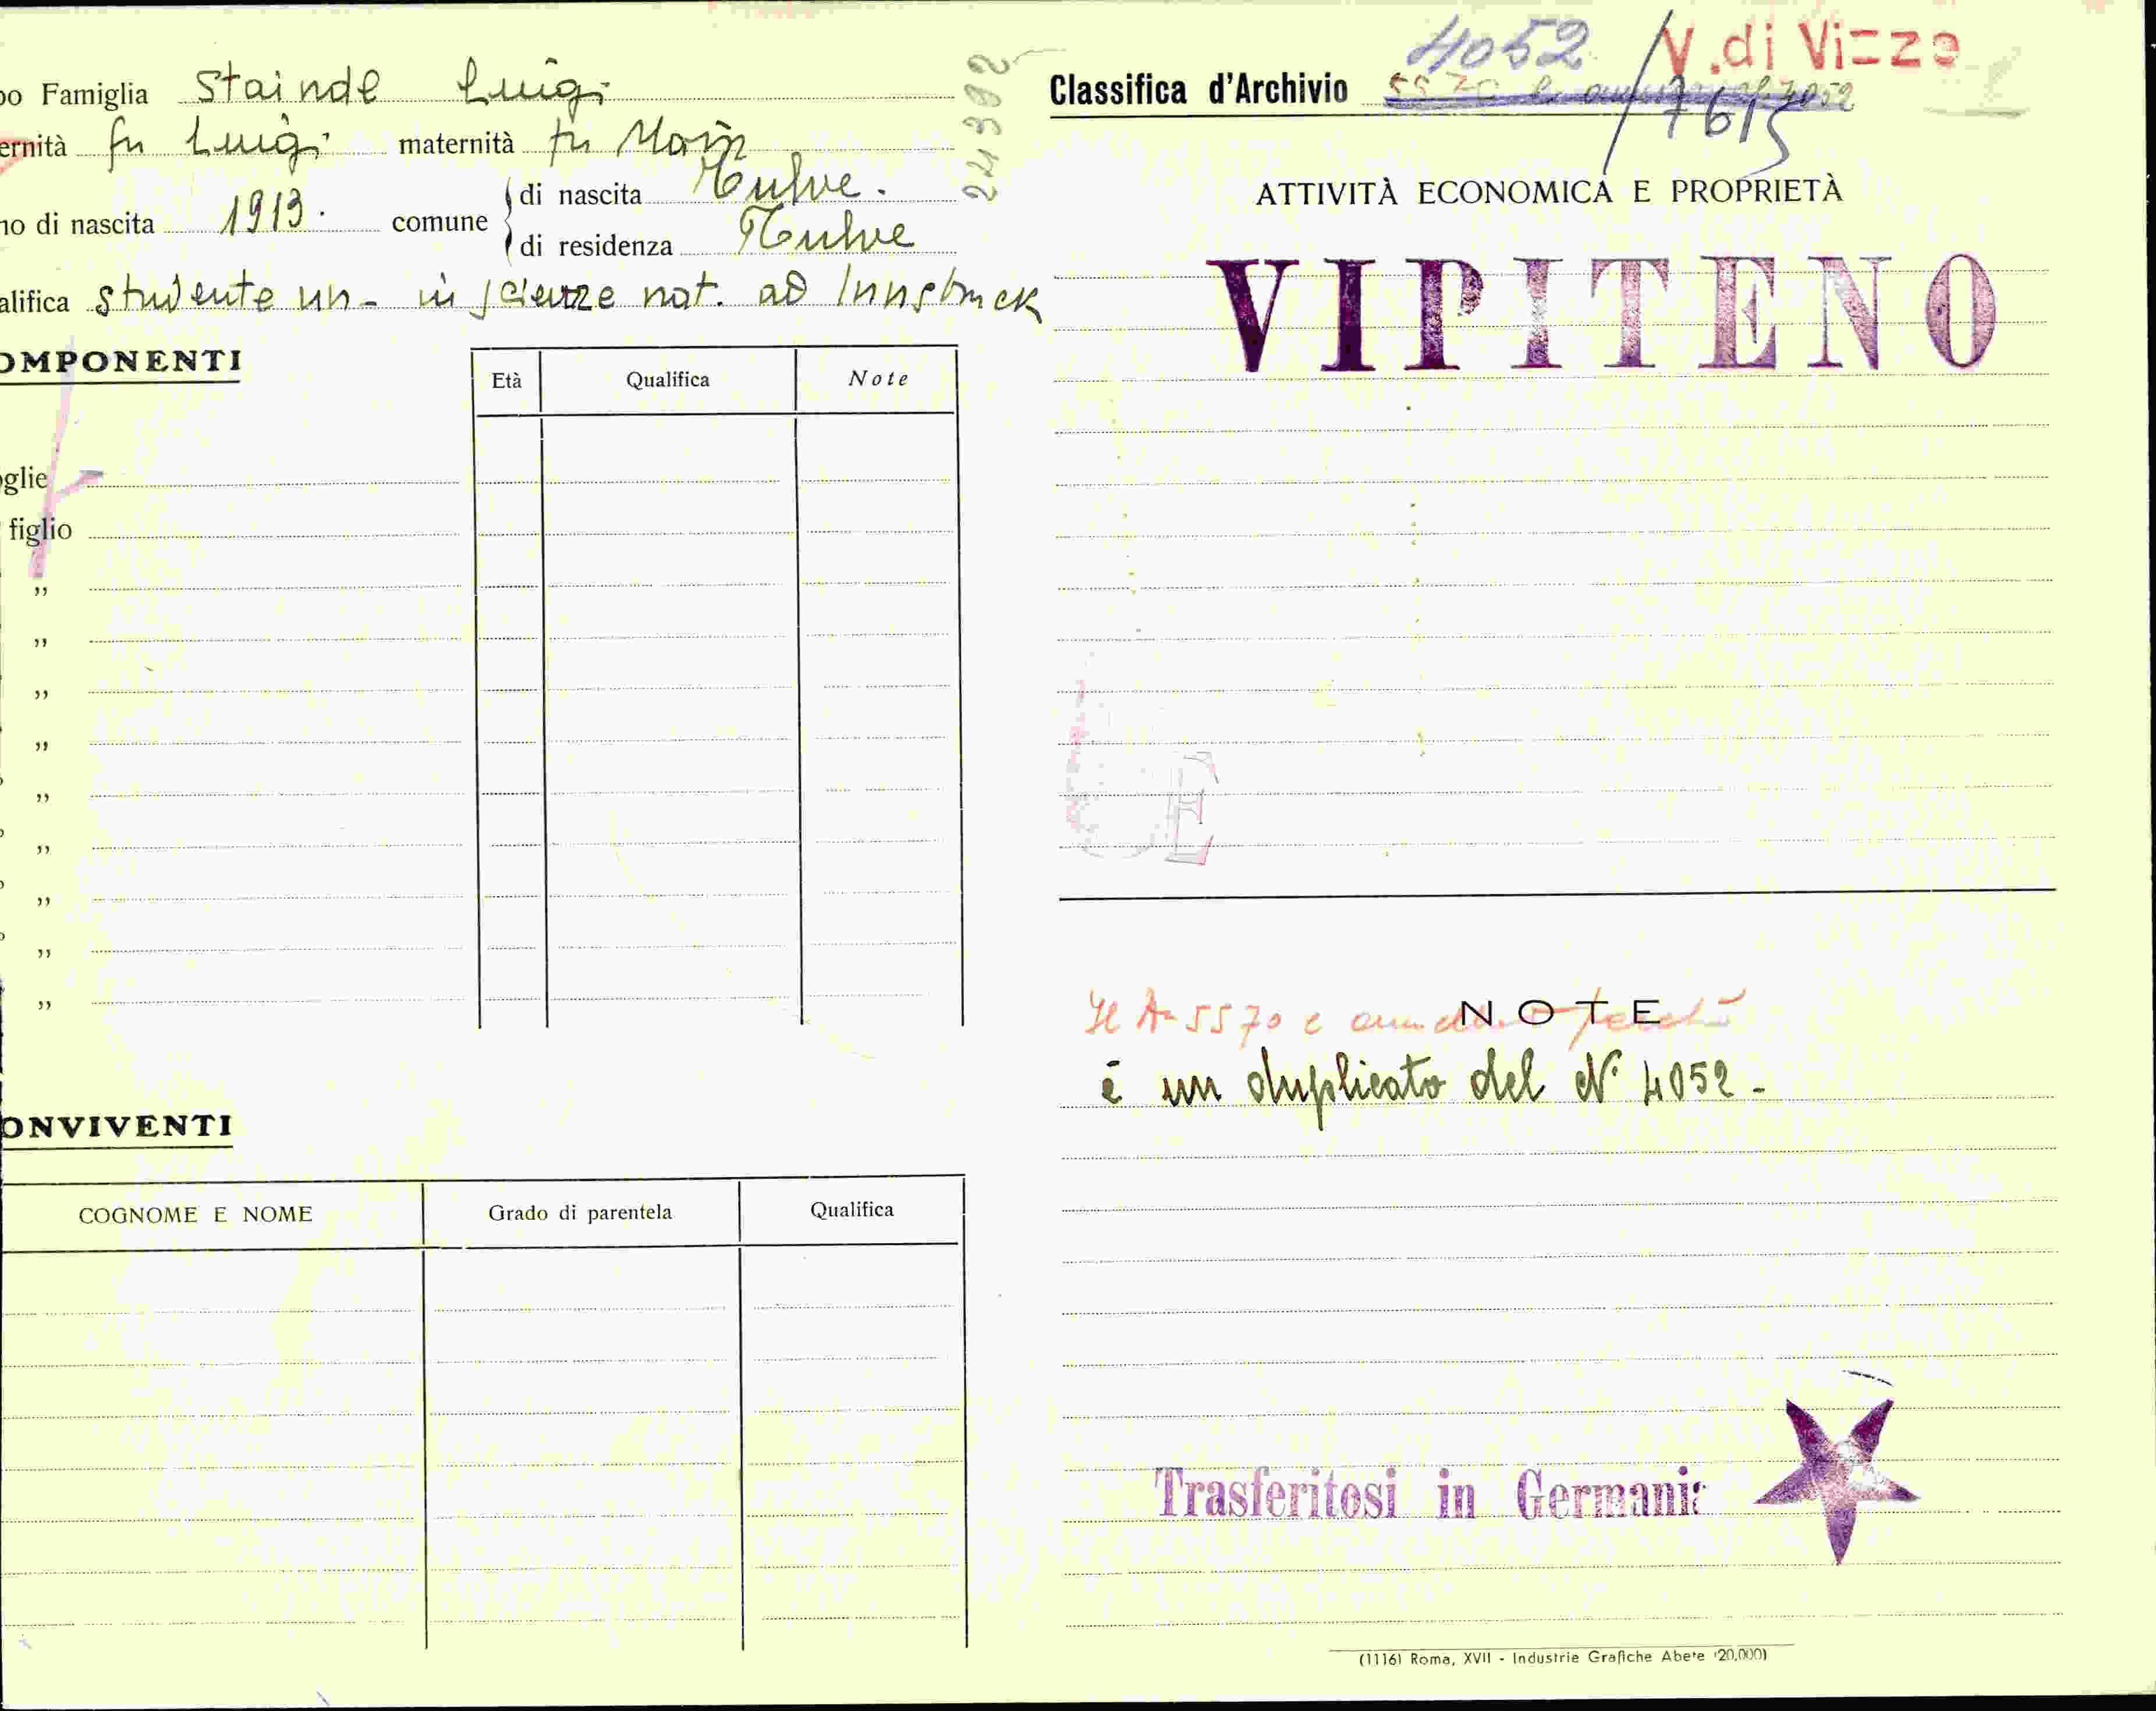 po Famiglia Staindl Luigi
ernità fu Luigi maternità fu Maria
no di nascita 1913. comune di nascita Tulve.
di residenza Tulve
alifica studente un- in scienze nat. ad Innsbruck
OMPONENTI
Età Qualifica Note
oglie
figlio
"
"
"
"
"
"
"
"
"
ONVIVENTI
COGNOME E NOME Grado di parentela Qualifica
224392
4052 / V. di Vizze
Classifica d'Archivio 5570 4052
7615
ATTIVITÀ ECONOMICA E PROPRIETÀ
VIPITENO
E
NOTE
Il N- 5570 è perchè
è un duplicato del N° 4052 -
Trasferitosi in Germani
(1116) Roma, XVII - Industrie Grafiche Abete (20.000)